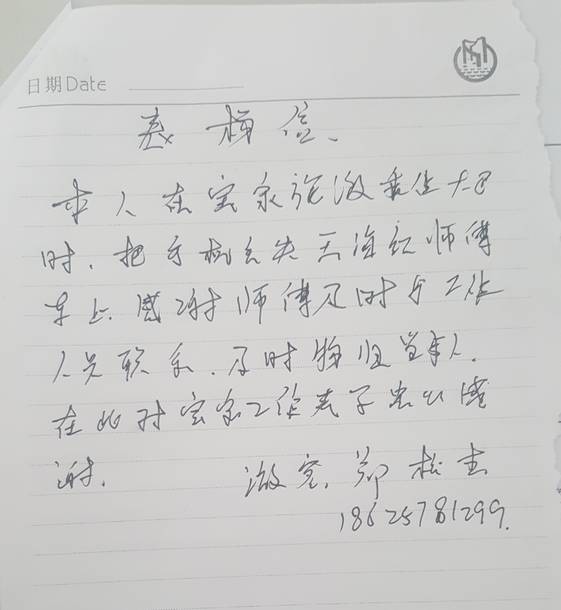 日期Date
表扬信、
本人在宝泉旅游乘坐大巴
时、把手机丢失王海红师傅
车上、感谢师傅及时与工作
人员联系、及时物归当事人.
在此对宝泉工作表示
谢.
游客、郑松
18625781299.